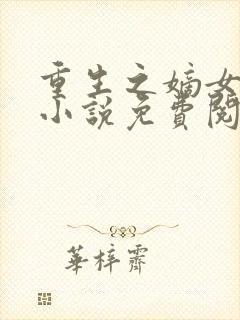 重生之嫡女
小說免費閱
華梓霽